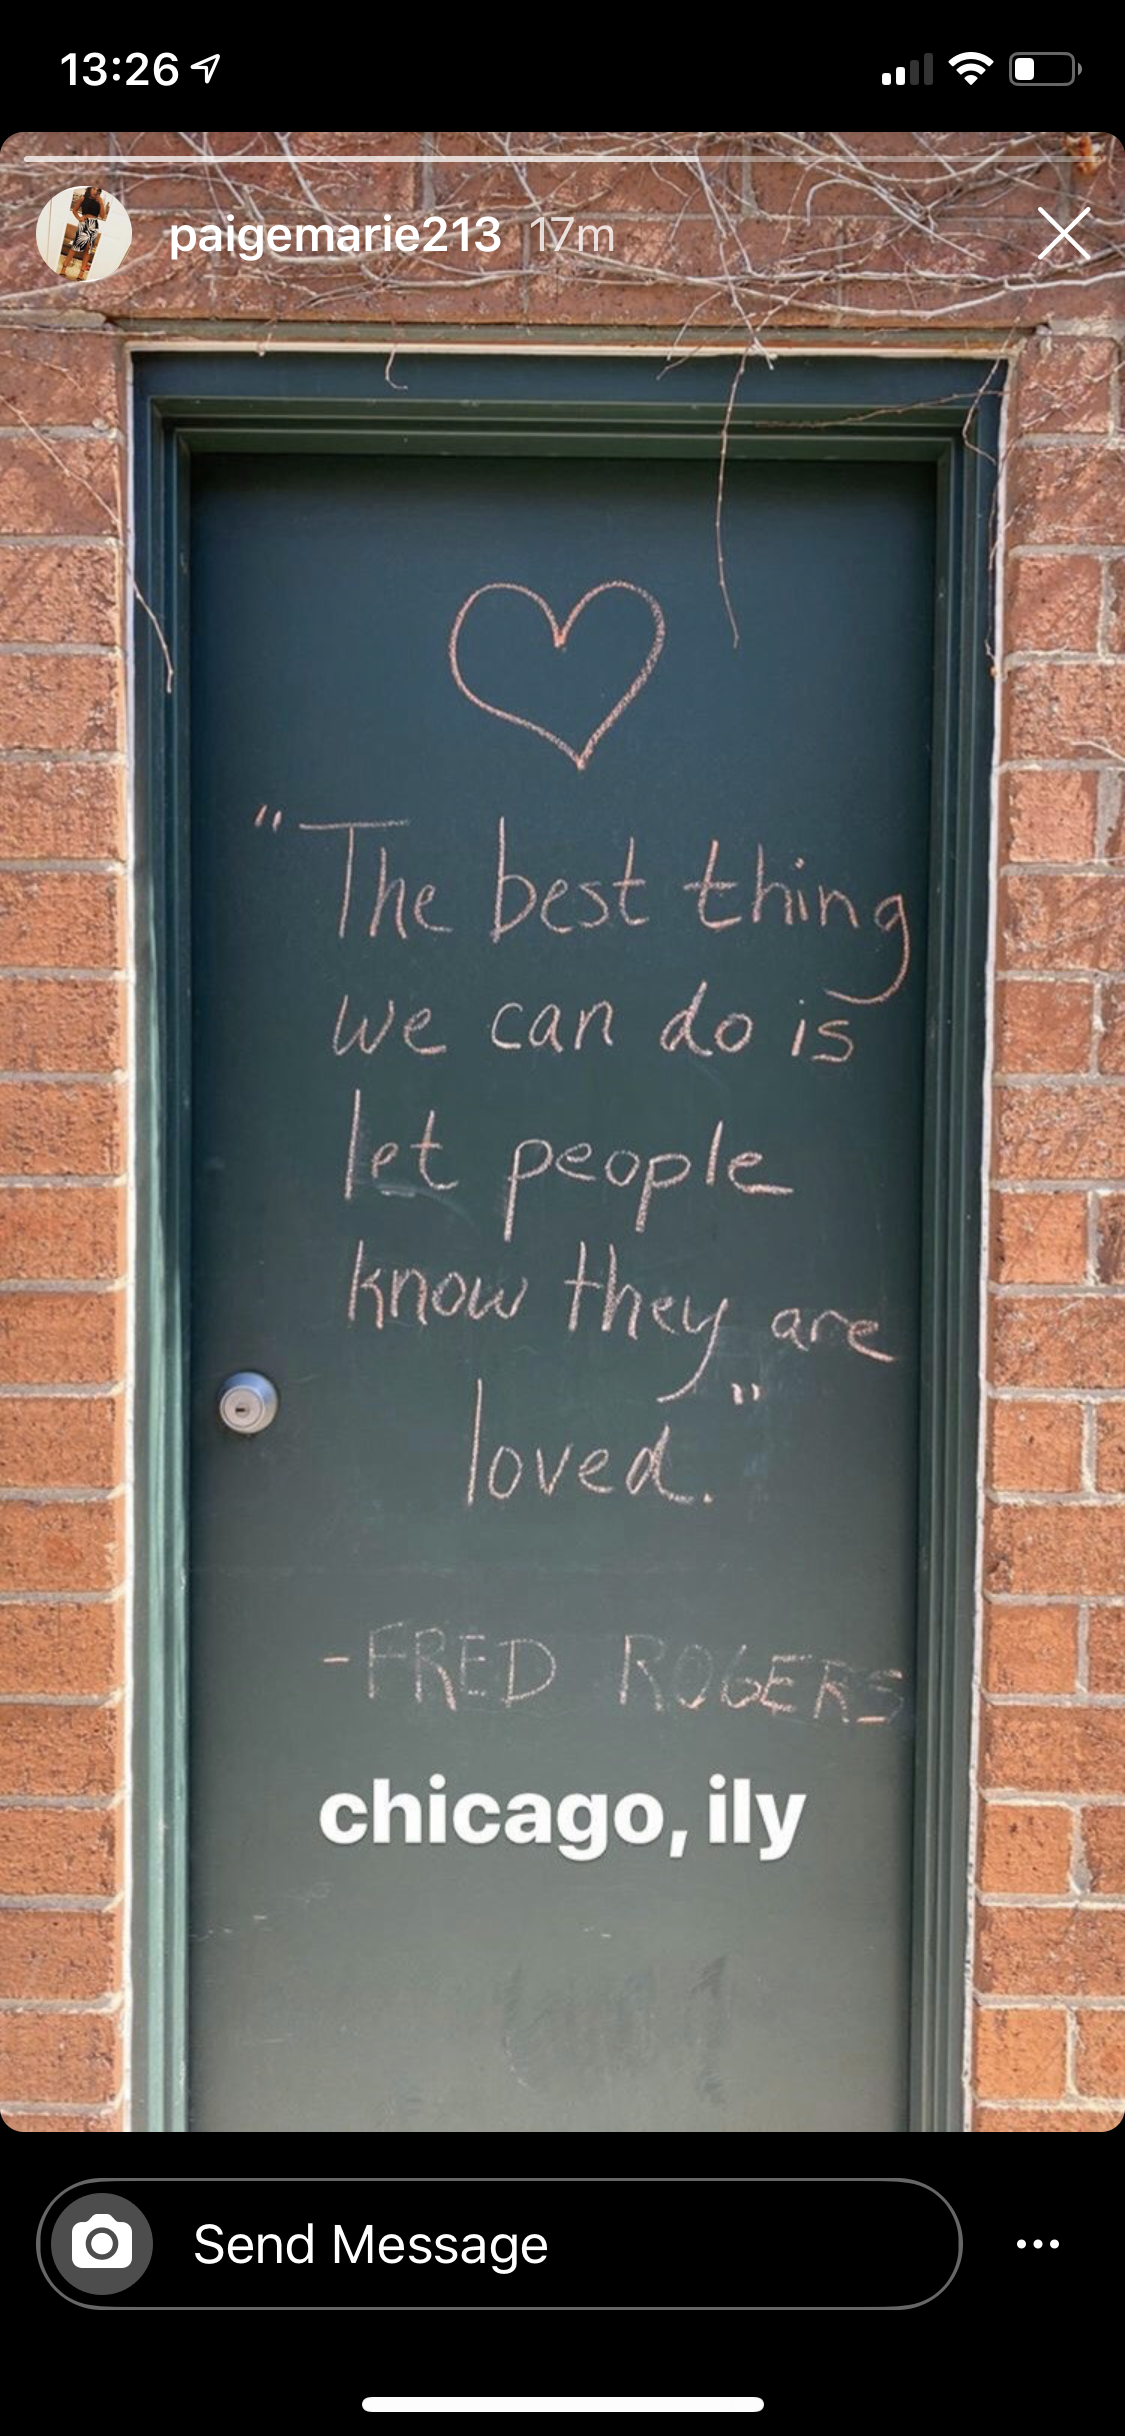 13:26
paigemarie213 17m
"The best thing
we can do is
let people
know they are
loved."
-FRED ROGERS
chicago, ily
Send Message